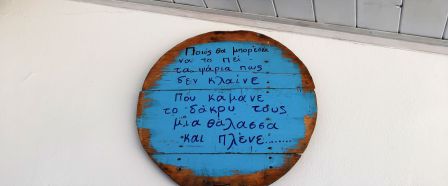 Ποιός θα μπορέσει
να το πει -
τα ψάρια πως
δεν κλαίνε
Που κάμανε
το δάκρυ τους
μια θάλασσα
και πλένε........